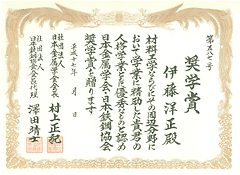 第五八七号
奨学賞
伊藤洋正殿
材料工学ならびにその周辺分野に
おいて学業に精励した貴君の
人格学業とも優秀なものと認め
日本金属学会・日本鉄鋼協会
奨学賞を贈ります
平成十七年 月 日
社団法人
日本金属学会会長 村上正紀
社団法人
日本鉄鋼協会会長代理 澤田靖士